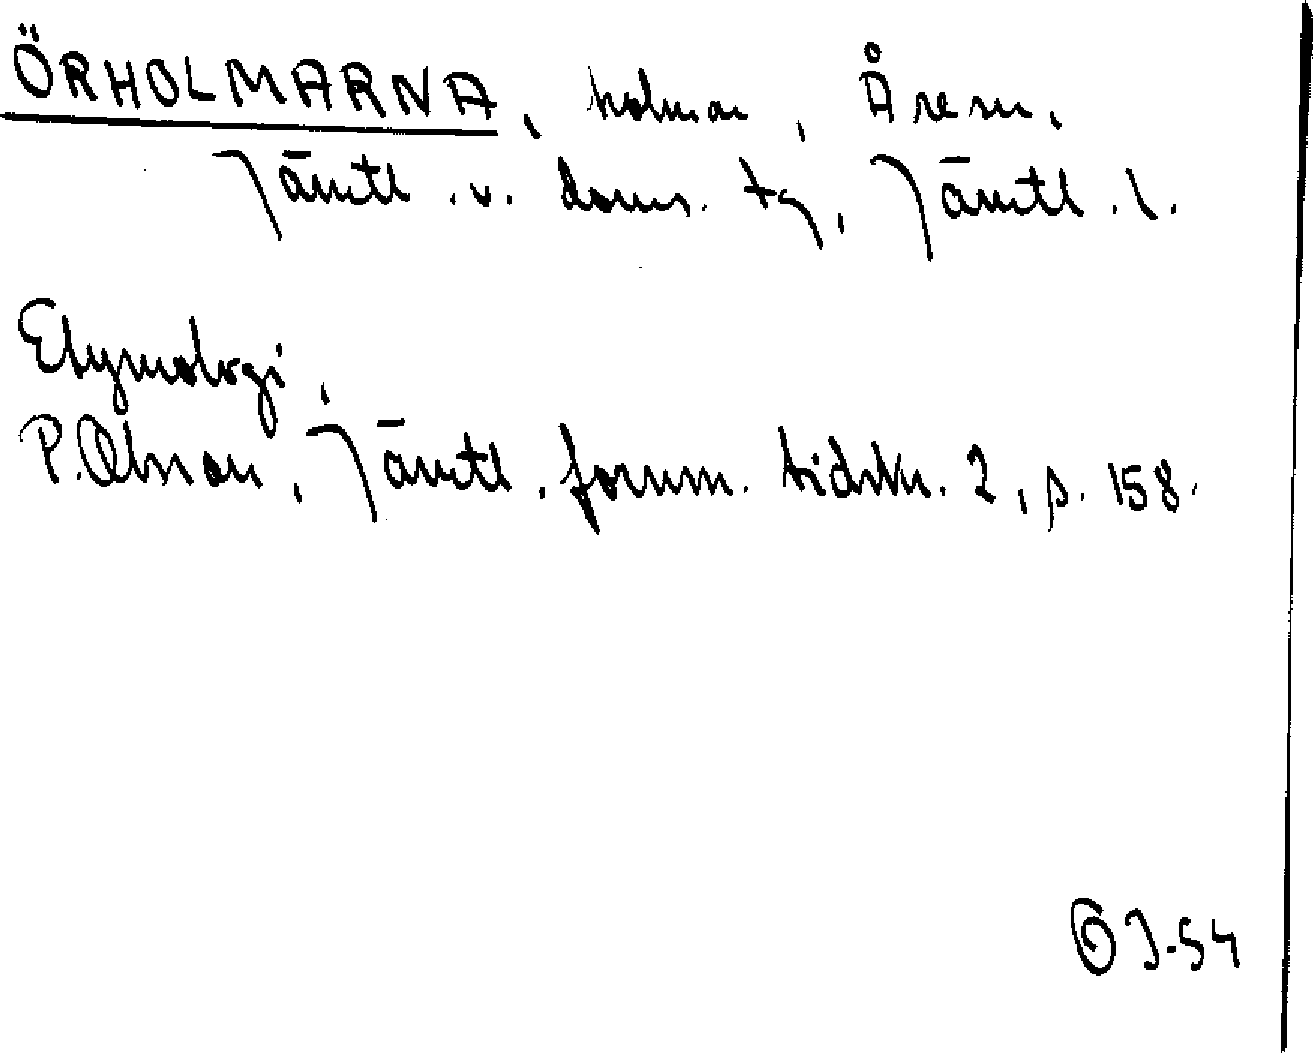 ÖRHOLMARNA, holmar, Åresn,
Jämtl. v. doms. tg, Jämtl. l.
Etymologi,
P. Olsson, Jämtl. fornm. tidskr. 2, s. 158.
J-54